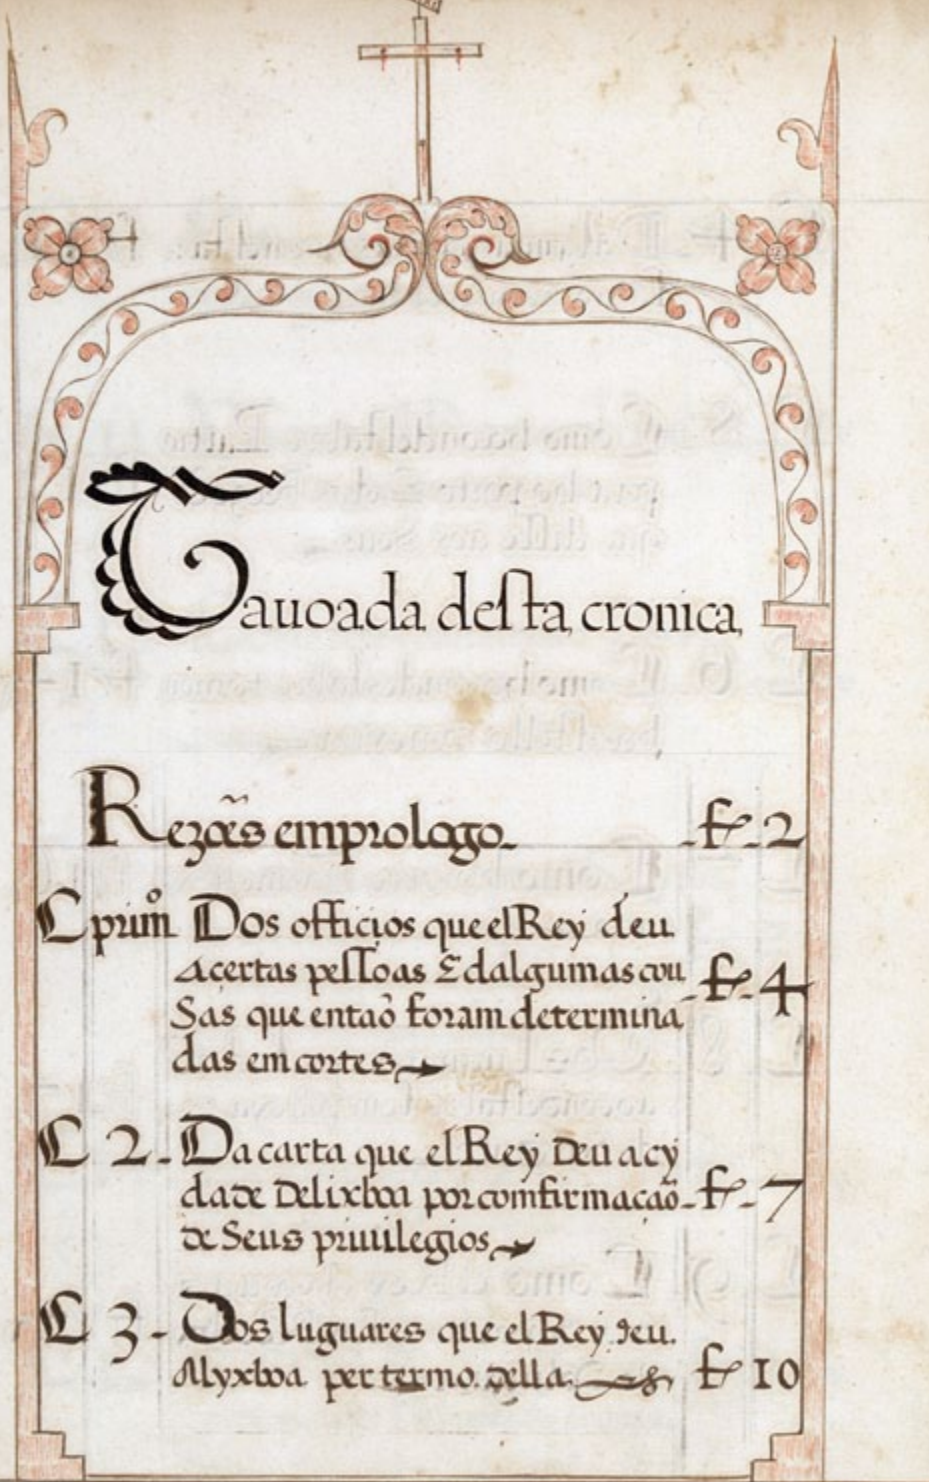 Tauoada desta cronica,
Rezões em prologo. - f. 2
C primº Dos officios que el Rey deu
acertas pessoas E dalgumas cou
sas que entaõ foram determina - f. 4
das em cortes
C 2 - Da carta que el Rey deu acy
dade delixboa por comfirmaçaõ - f. 7
de seus priuilegios
C 3 - Dos luguares que el Rey deu.
Alyxboa per termo. della. f. 10